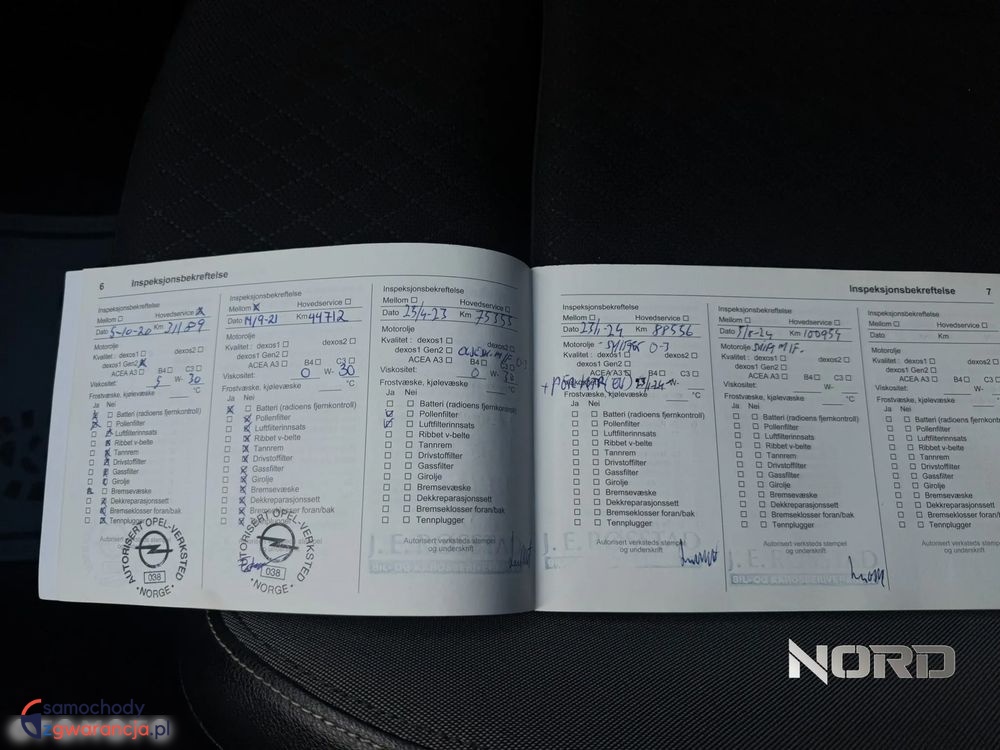 6 Inspeksjonsbekreftelse
Inspeksjonsbekreftelse
Mellom Hovedservice
Dato 5-10-20 Km 31189
Motorolje
Kvalitet : dexos1 dexos2
dexos1 Gen2
ACEA A3 B4 C3
Viskositet: 5 W- 30
Frostvæske, kjølevæske °C
Ja Nei
Batteri (radioens fjernkontroll)
Pollenfilter
Luftfilterinnsats
Ribbet v-belte
Tannrem
Drivstoffilter
Gassfilter
Girolje
Bremsevæske
Dekkreparasjonssett
Bremseklosser foran/bak
Tennplugger
AUTORISERT OPEL-VERKSTED
038
NORGE
Inspeksjonsbekreftelse
Mellom Hovedservice
Dato 14/9-21 Km 44712
Motorolje
Kvalitet : dexos1 dexos2
dexos1 Gen2
ACEA A3 B4 C3
Viskositet: 0 W- 30
Frostvæske, kjølevæske °C
Ja Nei
Batteri (radioens fjernkontroll)
Pollenfilter
Luftfilterinnsats
Ribbet v-belte
Tannrem
Drivstoffilter
Gassfilter
Girolje
Bremsevæske
Dekkreparasjonssett
Bremseklosser foran/bak
Tennplugger
AUTORISERT OPEL-VERKSTED
038
NORGE
Inspeksjonsbekreftelse
Mellom Hovedservice
Dato 25/4-23 Km 75355
Motorolje
Kvalitet : dexos1 dexos2
dexos1 Gen2
ACEA A3 B4 C3
Viskositet: 0 W- 30
Frostvæske, kjølevæske °C
Ja Nei
Batteri (radioens fjernkontroll)
Pollenfilter
Luftfilterinnsats
Ribbet v-belte
Tannrem
Drivstoffilter
Gassfilter
Girolje
Bremsevæske
Dekkreparasjonssett
Bremseklosser foran/bak
Tennplugger
Autorisert verksteds stempel
og underskrift
Inspeksjonsbekreftelse 7
Inspeksjonsbekreftelse
Mellom Hovedservice
Dato 23/1-24 Km 88556
Motorolje 0-3
Kvalitet : dexos1 dexos2
dexos1 Gen2
ACEA A3 B4 C3
23/1-24 W-
Frostvæske, kjølevæske °C
Ja Nei
Batteri (radioens fjernkontroll)
Pollenfilter
Luftfilterinnsats
Ribbet v-belte
Tannrem
Drivstoffilter
Gassfilter
Girolje
Bremsevæske
Dekkreparasjonssett
Bremseklosser foran/bak
Tennplugger
Autorisert verksteds stempel
og underskrift
Inspeksjonsbekreftelse
Mellom Hovedservice
Dato 5/8-24 Km 100954
Motorolje
Kvalitet : dexos1 dexos2
dexos1 Gen2
ACEA A3 B4 C3
Viskositet: W-
Frostvæske, kjølevæske °C
Ja Nei
Batteri (radioens fjernkontroll)
Pollenfilter
Luftfilterinnsats
Ribbet v-belte
Tannrem
Drivstoffilter
Gassfilter
Girolje
Bremsevæske
Dekkreparasjonssett
Bremseklosser foran/bak
Tennplugger
Autorisert verksteds stempel
og underskrift
Inspeksjonsbekreftelse
Mellom Hovedservice
Dato Km
Motorolje
Kvalitet : dexos1
dexos1 Gen2
ACEA A3 B4
Viskositet: W-
Frostvæske, kjølevæske
Ja Nei
Batteri (radioens fjernkontr
Pollenfilter
Luftfilterinnsats
Ribbet v-belte
Tannrem
Drivstoffilter
Gassfilter
Girolje
Bremsevæske
Dekkreparasjonssett
Bremseklosser foran/bak
Tennplugger
Autorisert verksteds ste
og underskrift
NORD
samochody
zgwarancja.pl